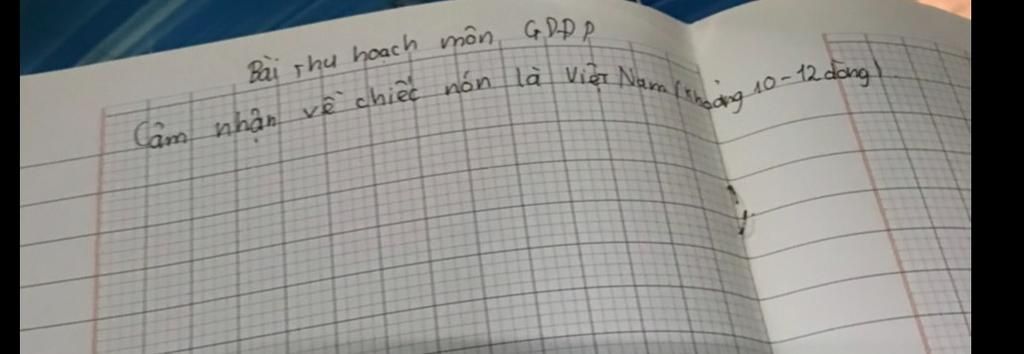 Bài thu hoạch môn GDĐP
Cảm nhận về chiếc nón lá Việt Nam (khoảng 10-12 dòng)